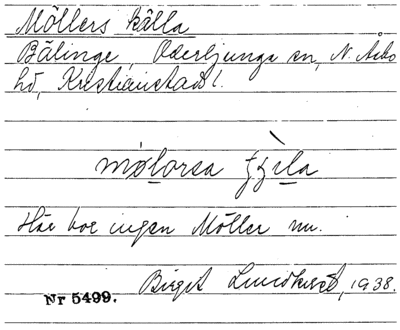 Möllers källa
Bälinge, Oderljunga sn, N. Åsbo
hd, Kristianstads l.
mølorsa
Här bor ingen Möller nu.
Birgit 1938.
Nr 5499.